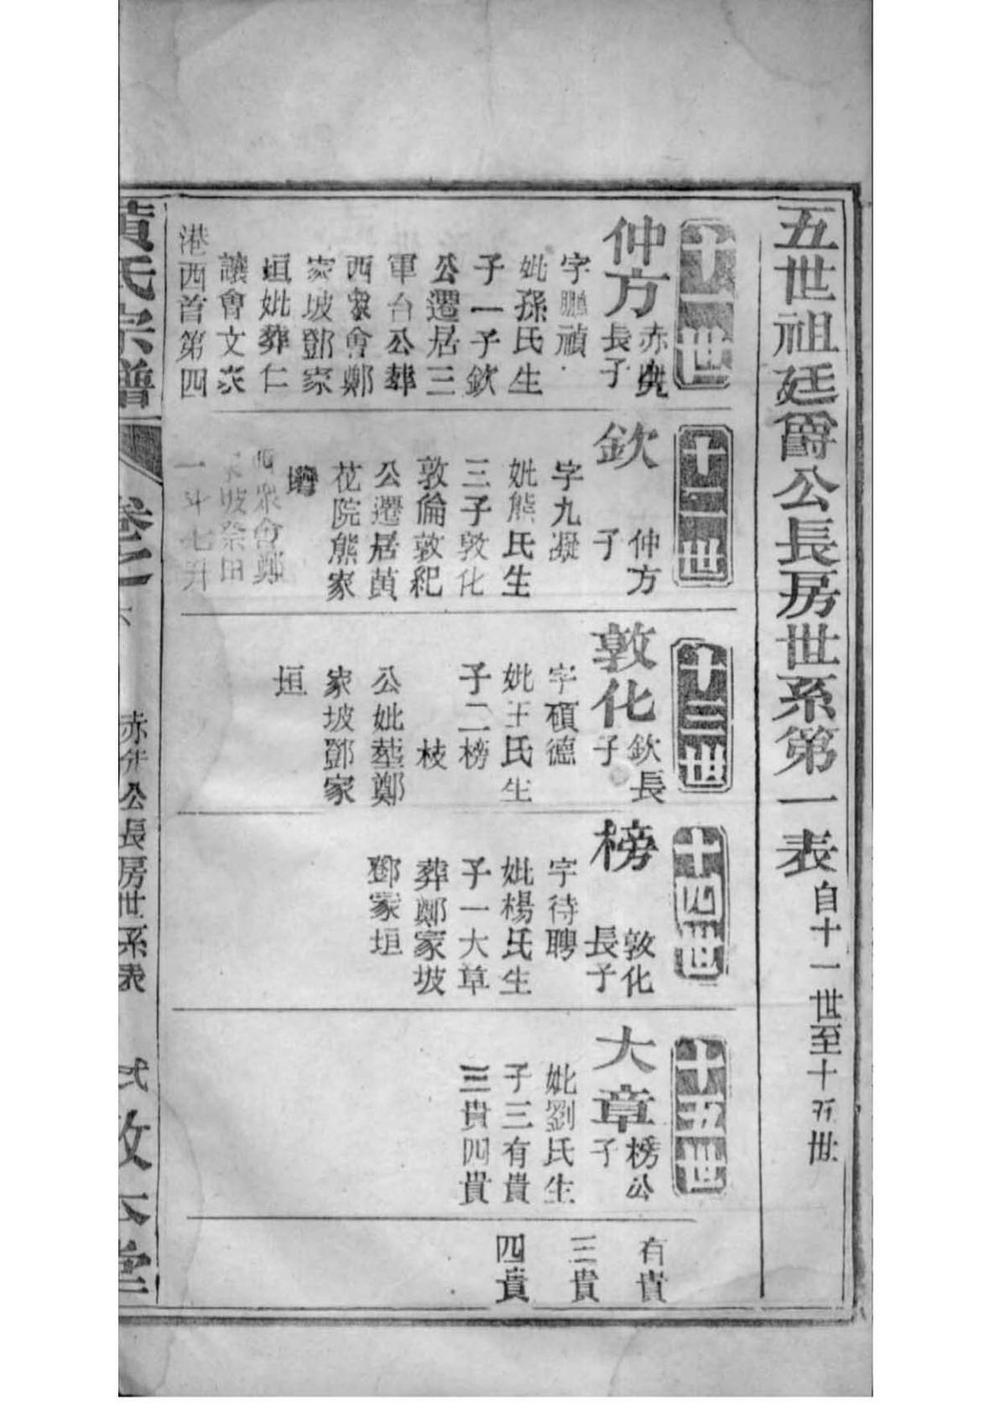 五世祖廷爵公長房世系第一表 自十一世至十五世
十一世
仲方 赤
長子
字鵬禎
妣孫氏生
子一子欽
公遷居三
軍台公葬
西衆會鄭
家坡鄧家
垣妣葬仁
讓會文家
港西首第四
十二世
欽 仲方
子
字九凝
妣熊氏生
三子敦化
敦倫敦紀
公遷居黃
花院熊家
西衆會鄭
家坡祭田
一斗七升
十三世
敦化 欽長
子
字碩德
妣王氏生
子二榜
枝
公妣塟鄭
家坡鄧家
垣
十四世
榜 敦化
長子
字待聘
妣楊氏生
子一大草
葬鄭家坡
鄧家垣
十五世
大章 榜公
子
妣劉氏生
子三有貴
三貴四貴
有貴
三貴
四貴
黃氏宗譜
卷之
公長房世系表
敦本堂